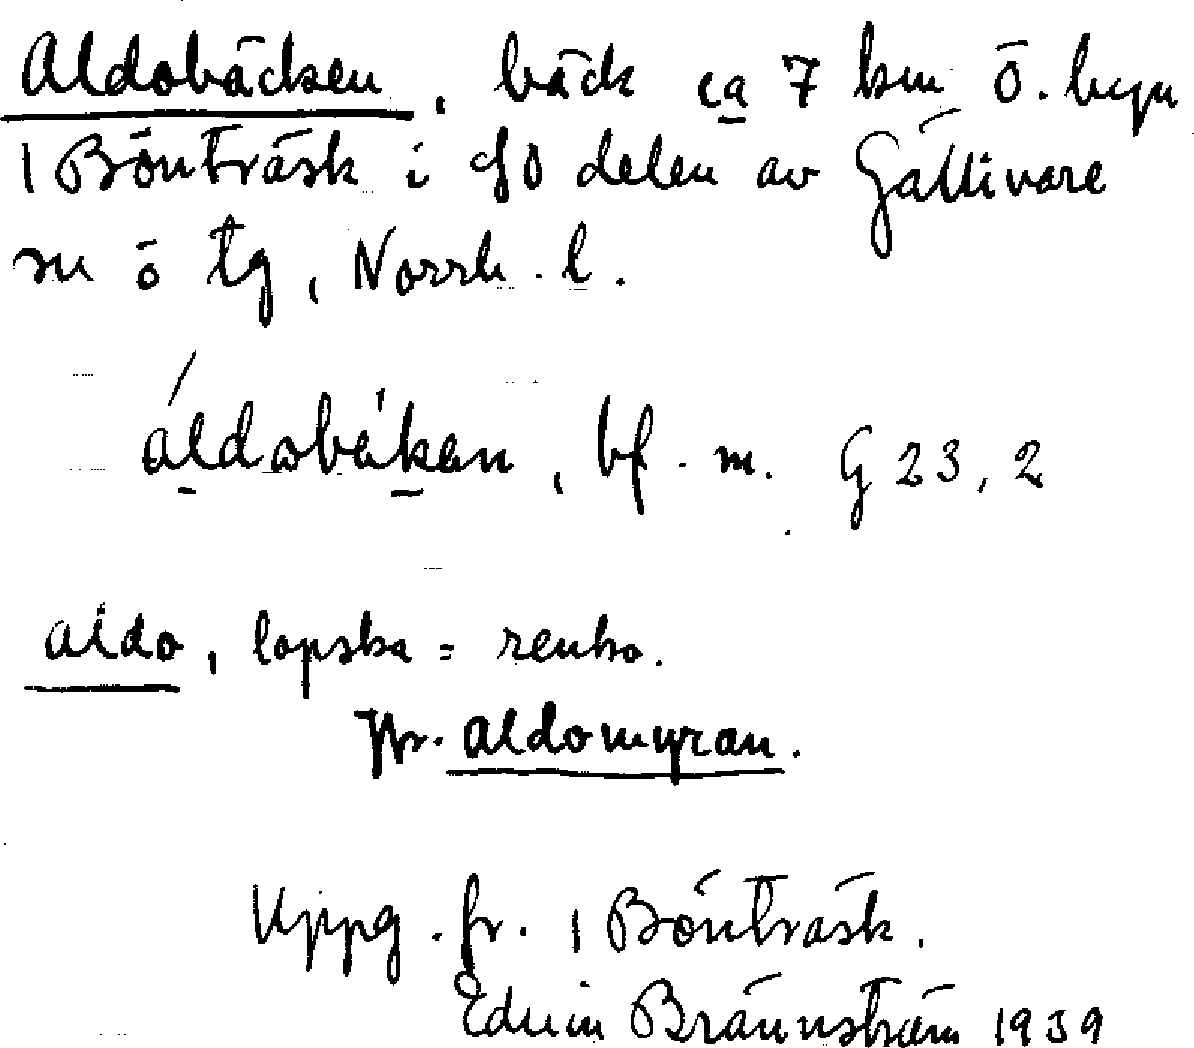 Aldobäcken, bäck ca 7 km Ö. byn
1 Bönträsk i SO delen av Gällivare
sn o tg, Norrb. l.
áldobäkan, bf. m. G 23, 2
aldo, lapska = renko.
Jfr. Aldomyran.
Uppg. fr. 1 Bönträsk.
Edvin Brännström 1939